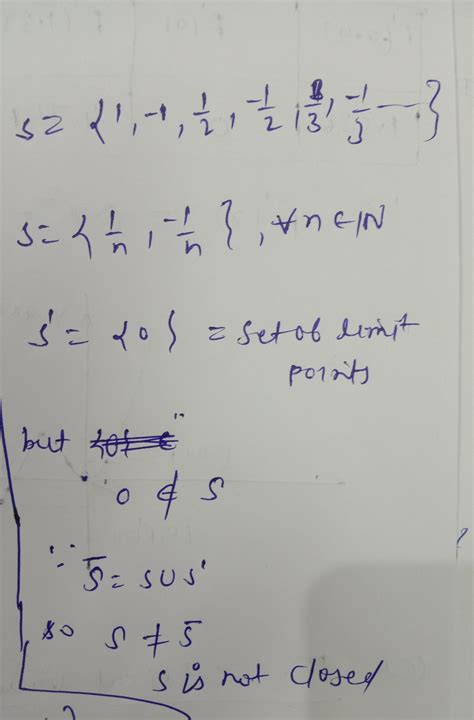 s = {1, -1, 1/2, -1/2, 1/3, -1/3 ---}
s = {1/n, -1/n}, ∀n∈IN
s' = {0} = set of limit
points
but
0 ∉ S
∵ S̄ = SUS'
so S ≠ S̄
S is not closed